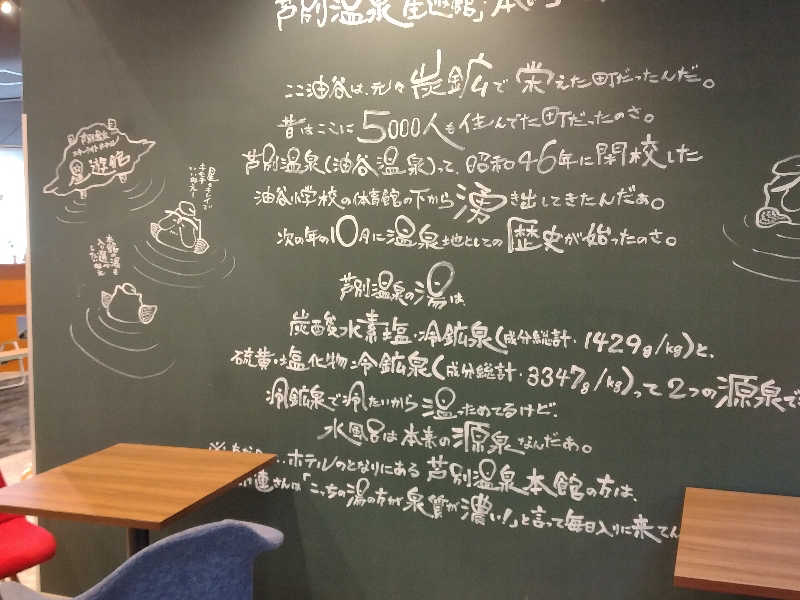 芦別温泉
ここ油谷は、元々炭鉱で栄えた町だったんだ。
昔はここに5000人も住んでた町だったのさ。
芦別温泉(油谷温泉)って、昭和46年に開校した
油谷小学校の体育館の下から湧き出してきたんだぁ。
次の年の10月に温泉地としての歴史が始ったのさ。
芦別温泉の湯は、
炭酸水素塩・冷鉱泉(成分総計・1429g/kg)と、
硫黄・塩化物冷鉱泉(成分総計・3347g/kg)って2つの源泉で
冷鉱泉で冷たいから温っためてるけど、
水風呂は本来の源泉なんだぁ。
ホテルのとなりにある芦別温泉本館の方は、
連さんは「こっちの湯の方が泉質が濃い!」と言って毎日入りに来てん
芦別温泉
スターライトホテル
遊館